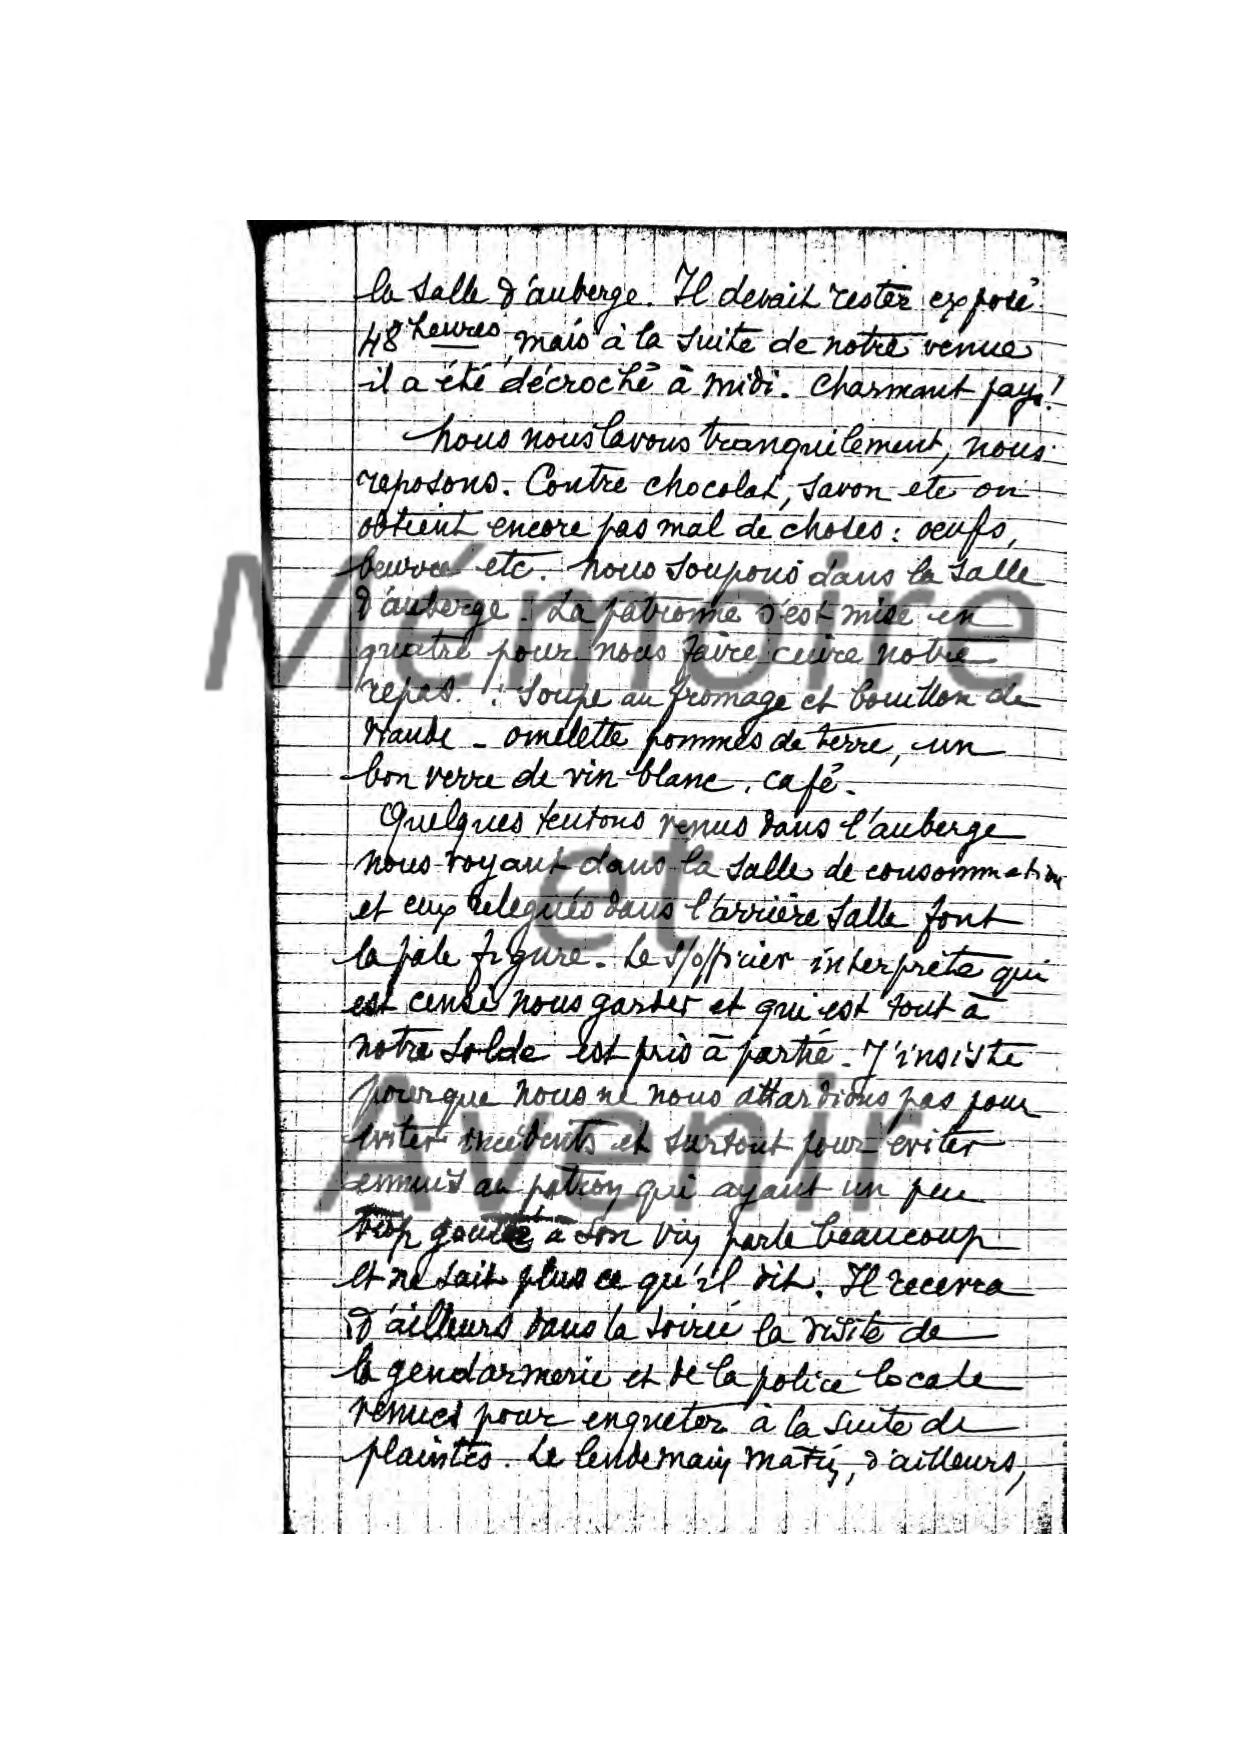 la salle d'auberge. Il devait rester exposé
48 heures, mais à la suite de notre venue
il a été décroché à midi. Charmant pays!
Nous nous lavons tranquilement, nous
reposons. Contre chocolat, savon etc on
obtient encore pas mal de choses : oeufs,
beurre etc. Nous soupons dans la salle
d'auberge. La patronne s'est mise en
quatre pour nous faire cuire notre
repas. : Soupe au fromage et bouillon de
viande - omelette pommes de terre, un
bon verre de vin blanc. café.
Quelques teutons venus dans l'auberge
nous voyant dans la salle de consommation
et eux relegués dans l'arrière salle font
la pâle figure. Le s/officier interprète qui
est censé nous garder et qui est tout à
notre solde est pris à partie. J'insiste
pour que nous ne nous attardions pas pour
eviter incidents et surtout pour eviter
ennuis au patron qui ayant un peu
trop gouté à son vin parle beaucoup
et ne sait plus ce qu'il dit. Il recevra
d'ailleurs dans la soirée la visite de
la gendarmerie et de la police locale
venues pour enqueter à la suite de
plaintes. Le lendemain matin, d'ailleurs,
Mémoire
et
Avenir